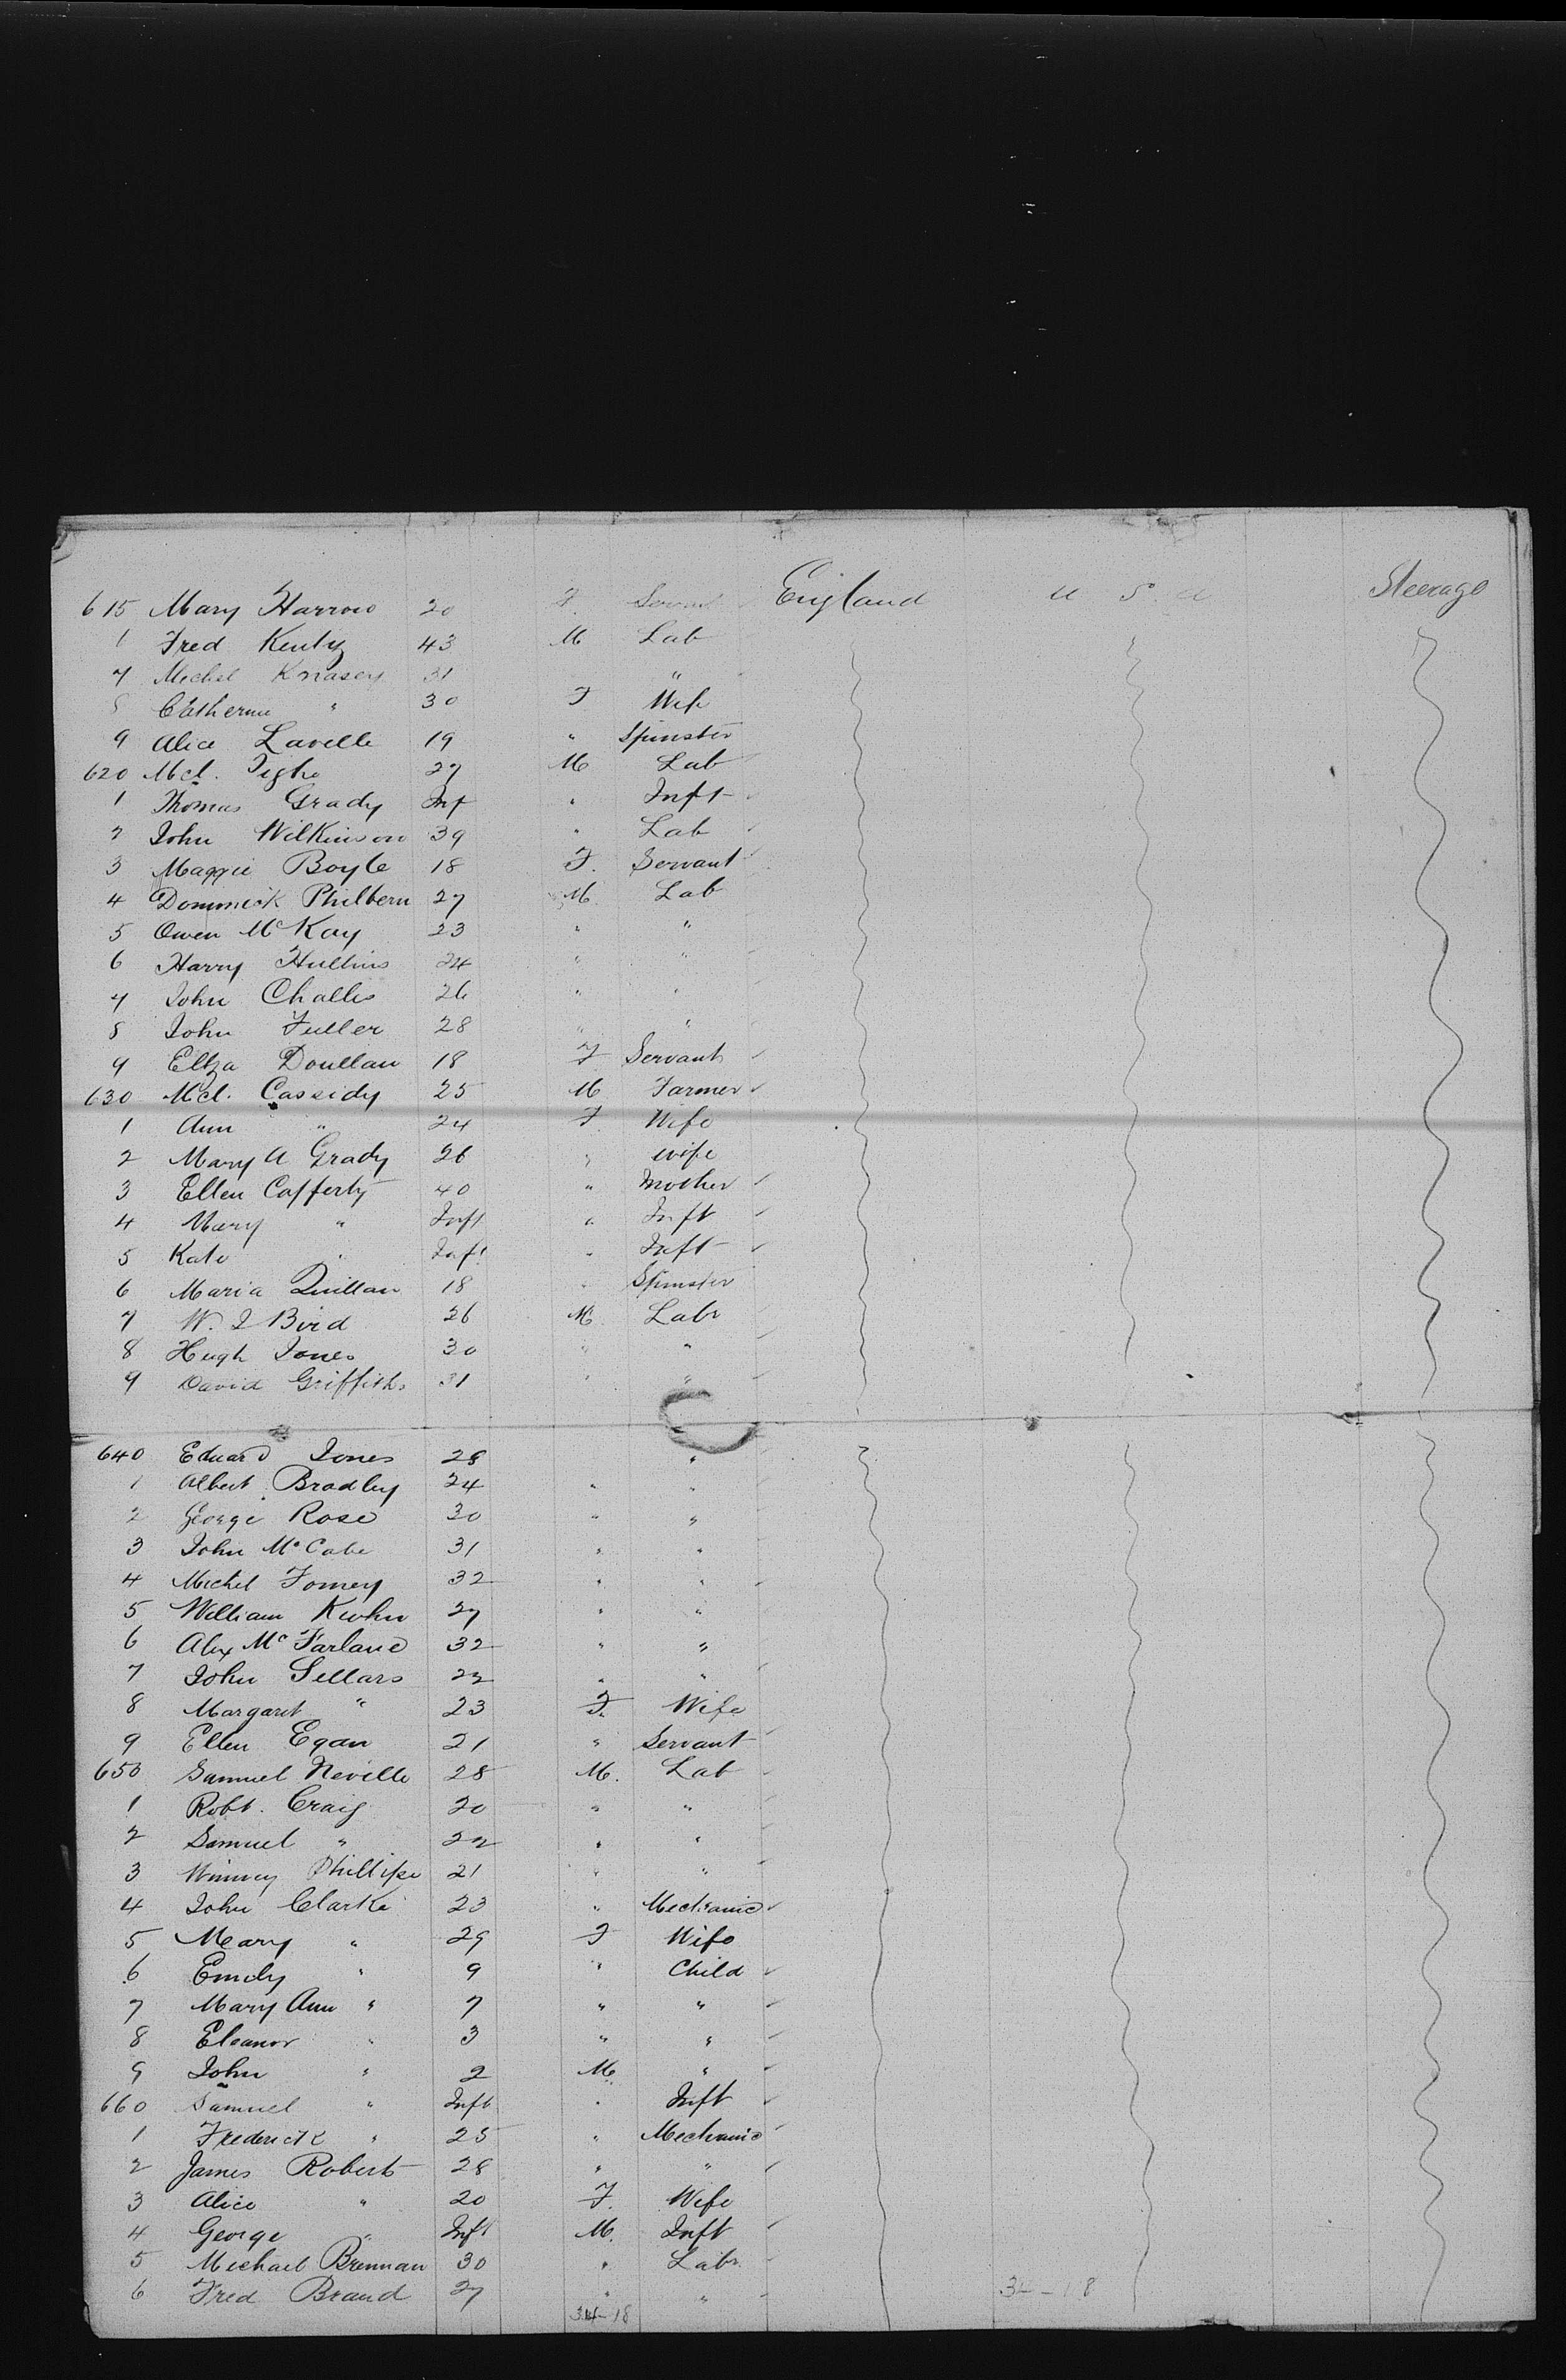 615 Mary Harrow 20 F. Servant England U S. A Steerage
1 Fred Kentz 43 M Lab
7 Michel Knasey 31 "
8 Catherine " 30 F Wife
9 Alice Lavelle 19 " Spinster
620 Mcl. Tighe 27 M Lab
1 Thomas Grady Inf " Inft
2 John Wilkinson 39 " Lab
3 Maggie Boyle 18 F. Servant
4 Dominick Philbern 27 M Lab
5 Owen McKay 23 " "
6 Harry Hullins 24 " "
7 John Challis 26 " "
8 John Fuller 28 " "
9 Eliza Doullan 18 F Servant
630 Mcl. Cassidy 25 M Farmer
1 Ann " 24 F Wife
2 Mary A Grady 26 " wife
3 Ellen Cafferty 40 " Mother
4 Mary " Inft " Inft
5 Kate " Inft " Inft
6 Maria Quillan 18 " Spinster
7 W. J Bird 26 M. Labr
8 Hugh Jones 30 " "
9 David Griffiths 31 " "
640 Eduard Jones 28 "
1 Albert Bradley 24 " "
2 George Rose 30 " "
3 John McCabe 31 " "
4 Michel Fomey 32 " "
5 William Kuhn 27 " "
6 Alex McFarland 32 " "
7 John Sellars 22 " "
8 Margaret " 23 F. Wife
9 Ellen Egan 21 " Servant
650 Samuel Neville 28 M. Lab
1 Robt. Craig 20 " "
2 Samuel " 22 " "
3 Winney Phillips 21 " "
4 John Clarke 23 " Mechanic
5 Mary " 29 F Wife
6 Emily " 9 " Child
7 Mary Ann " 7 " "
8 Eleanor " 3 " "
9 John " 2 M "
660 Samuel " Inft " Inft
1 Frederick " 25 " Mechanic
2 James Roberts 28 " "
3 Alice " 20 F. Wife
4 George " Inft M. Inft
5 Michael Brennan 30 " Labr.
6 Fred Brand 27 " "
34-18 34-18